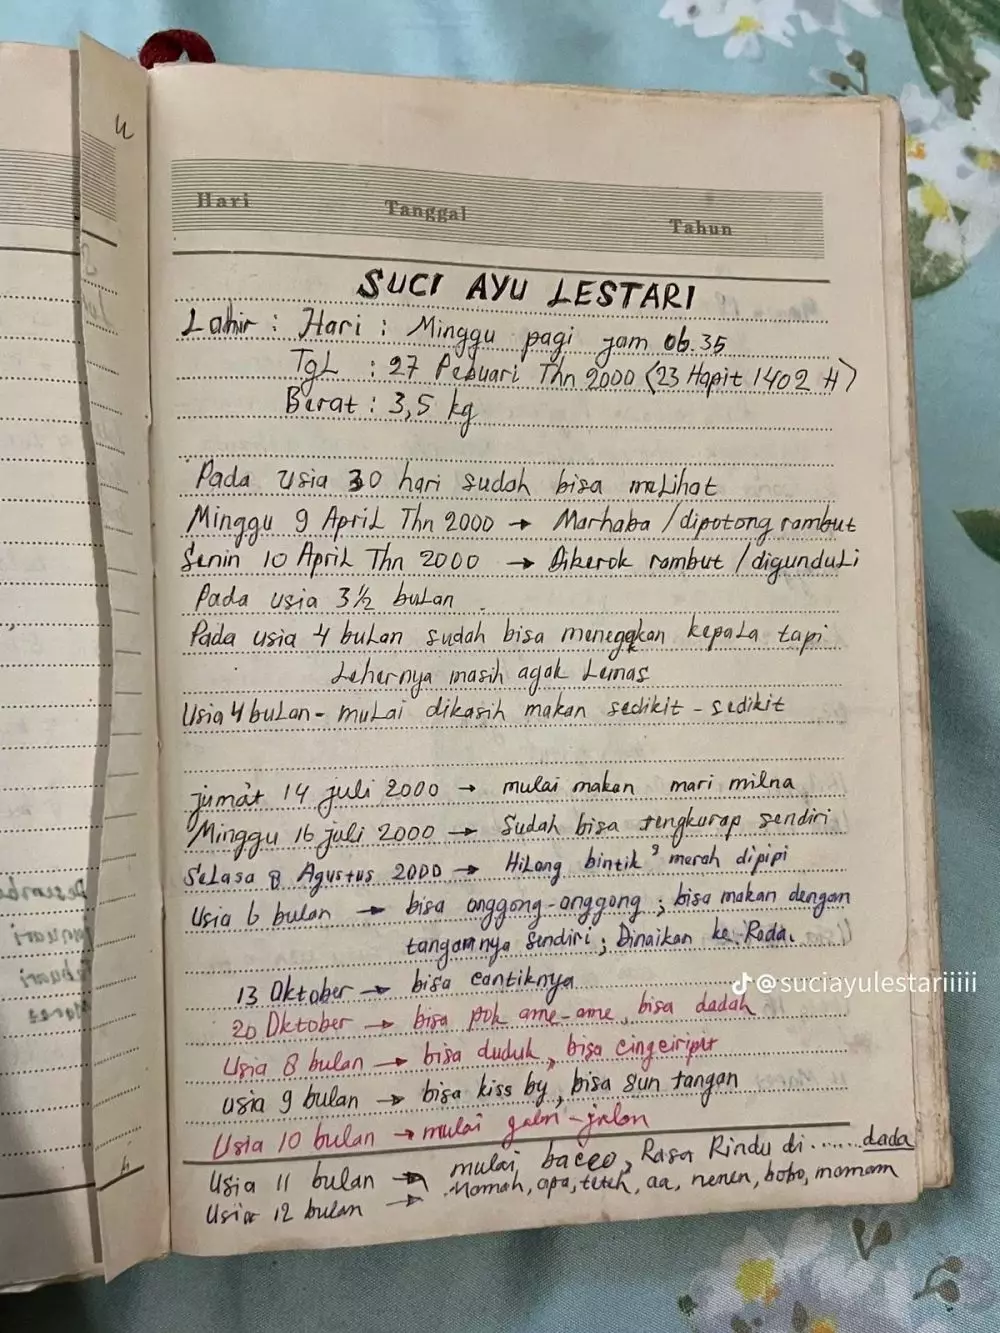 u
Hari Tanggal Tahun
SUCI AYU LESTARI
Lahir : Hari : Minggu pagi jam 06.35
TgL : 27 Pebuari Thn 2000 (23 Hapit 1402 H)
Berat : 3,5 kg
Pada usia 30 hari sudah bisa meLihat
Minggu 9 ApriL Thn 2000 → Marhaba / dipotong rambut
Senin 10 ApriL Thn 2000 → Dikerok rambut / digunduLi
Pada usia 3½ buLan
Pada usia 4 buLan sudah bisa menegakan kepaLa tapi
Lehernya masih agak Lemas
Usia 4 buLan - muLai dikasih makan sedikit - sedikit
jumat 14 juli 2000 → mulai makan mari milna
Minggu 16 juli 2000 → Sudah bisa tengkurap sendiri
SeLasa 8 Agustus 2000 → HiLang bintik² merah dipipi
Usia 6 bulan → bisa anggong-anggong ; bisa makan dengan
tangannya sendiri ; Dinaikan ke Roda.
13 Oktober → bisa cantiknya
@suciayulestariiiii
20 Oktober → bisa pok ame-ame, bisa dadah
Usia 8 bulan → bisa duduk, bisa cingeiriput
usia 9 bulan → bisa kiss by, bisa sun tangan
Usia 10 bulan → mulai jalan-jalan
Usia 11 bulan → mulai baceo, Rasa Rindu di ...... dada
Usia 12 bulan → Mamah, apa, teteh, aa, nenen, bobo, mamam